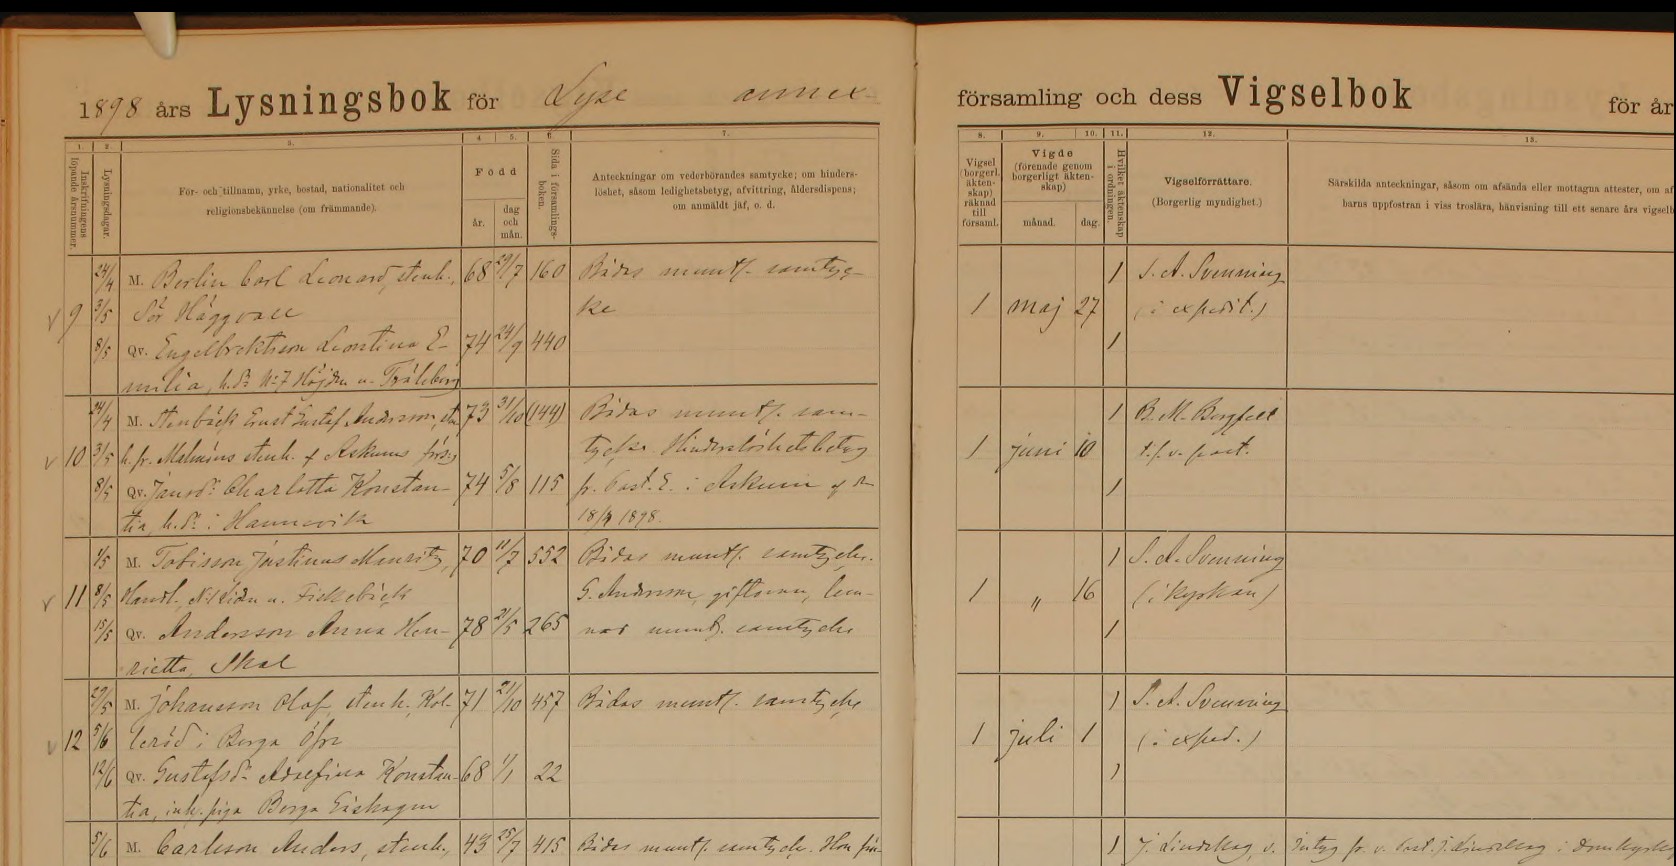 1898 års Lysningsbok för Lyse annex-
församling och dess Vigselbok för år
1. 2. 3. 4. 5. 6. 7.
8. 9. 10. 11. 12. 13.
Inskrifningens löpande årsnummer.
Lysningsdagar.
För- och tillnamn, yrke, bostad, nationalitet och
religionsbekännelse (om främmande).
Född
år.
dag
och
mån.
Sida i församlings-
boken.
Anteckningar om vederbörandes samtycke; om hinders-
löshet, såsom ledighetsbetyg, afvittring, åldersdispens;
om anmäldt jäf, o. d.
Vigsel
(borgerl.
äkten-
skap)
räknad
till
församl.
Vigde
(förenade genom
borgerligt äkten-
skap)
månad.
dag.
Hvilket äktenskap
i ordningen.
Vigselförrättare.
(Borgerlig myndighet.)
Särskilda anteckningar, såsom om afsända eller mottagna attester, om af
barns uppfostran i viss troslära, hänvisning till ett senare års vigselb
24/4 M. Berlin Carl Leonard, stenh., 68 29/7 160 Bådas muntl. samtyc- 1 S. A. Svenning
9 3/5 Sör Häggvall ke 1 maj 27 (i expedit.)
8/5 Qv. Engelbrektsson Leontina E- 74 24/9 440 1
milia, h.dr No 7 Höjden u. Tråleberg
24/4 M. Stenbäck Ernst Gustaf Andersson, 73 31/10 (144) Bådas muntl. sam- 1 B. M. Bergfelt
10 3/5 h. fr. Malmöns stenh. f Askums förs:g tycke. Hinderslöshetsbetyg 1 juni 10 t.f. v. past.
8/5 Qv. Jansdr Charlotta Konstan- 74 5/8 115 fr. Past. E. i Askum af d. 1
tia, h.dr i Hannevik 18/4 1898.
1/5 M. Tobisson Justinus Mauritz, 70 11/7 552 Bådas muntl. samtycke. 1 S. A. Svenning
11 8/5 Handl., No 1 Liden u. Fiskebäck G. Andersson, giftoman, lem- 1 " 16 (i kyrkan)
15/5 Qv. Andersson Anna Hen- 78 21/5 265 nar muntl. samtycke 1
rietta, Skal
29/5 M. Johansson Olof, stenh. Kol- 71 21/10 457 Bådas muntl. samtycke 1 S. A. Svenning
12 5/6 leröd i Berga Öfre 1 juli 1 (i exped.)
12/6 Qv. Gustafsdr Adsefina Konstan- 68 1/1 22 1
tia, inh. piga Berga Gåshagen
5/6 M. Carlsson Anders, stenh., 43 25/7 415 Bådas muntl. samtycke. Hon 1 J. Lindskog, v. Intyg fr. v. Past. J. Lindskog i